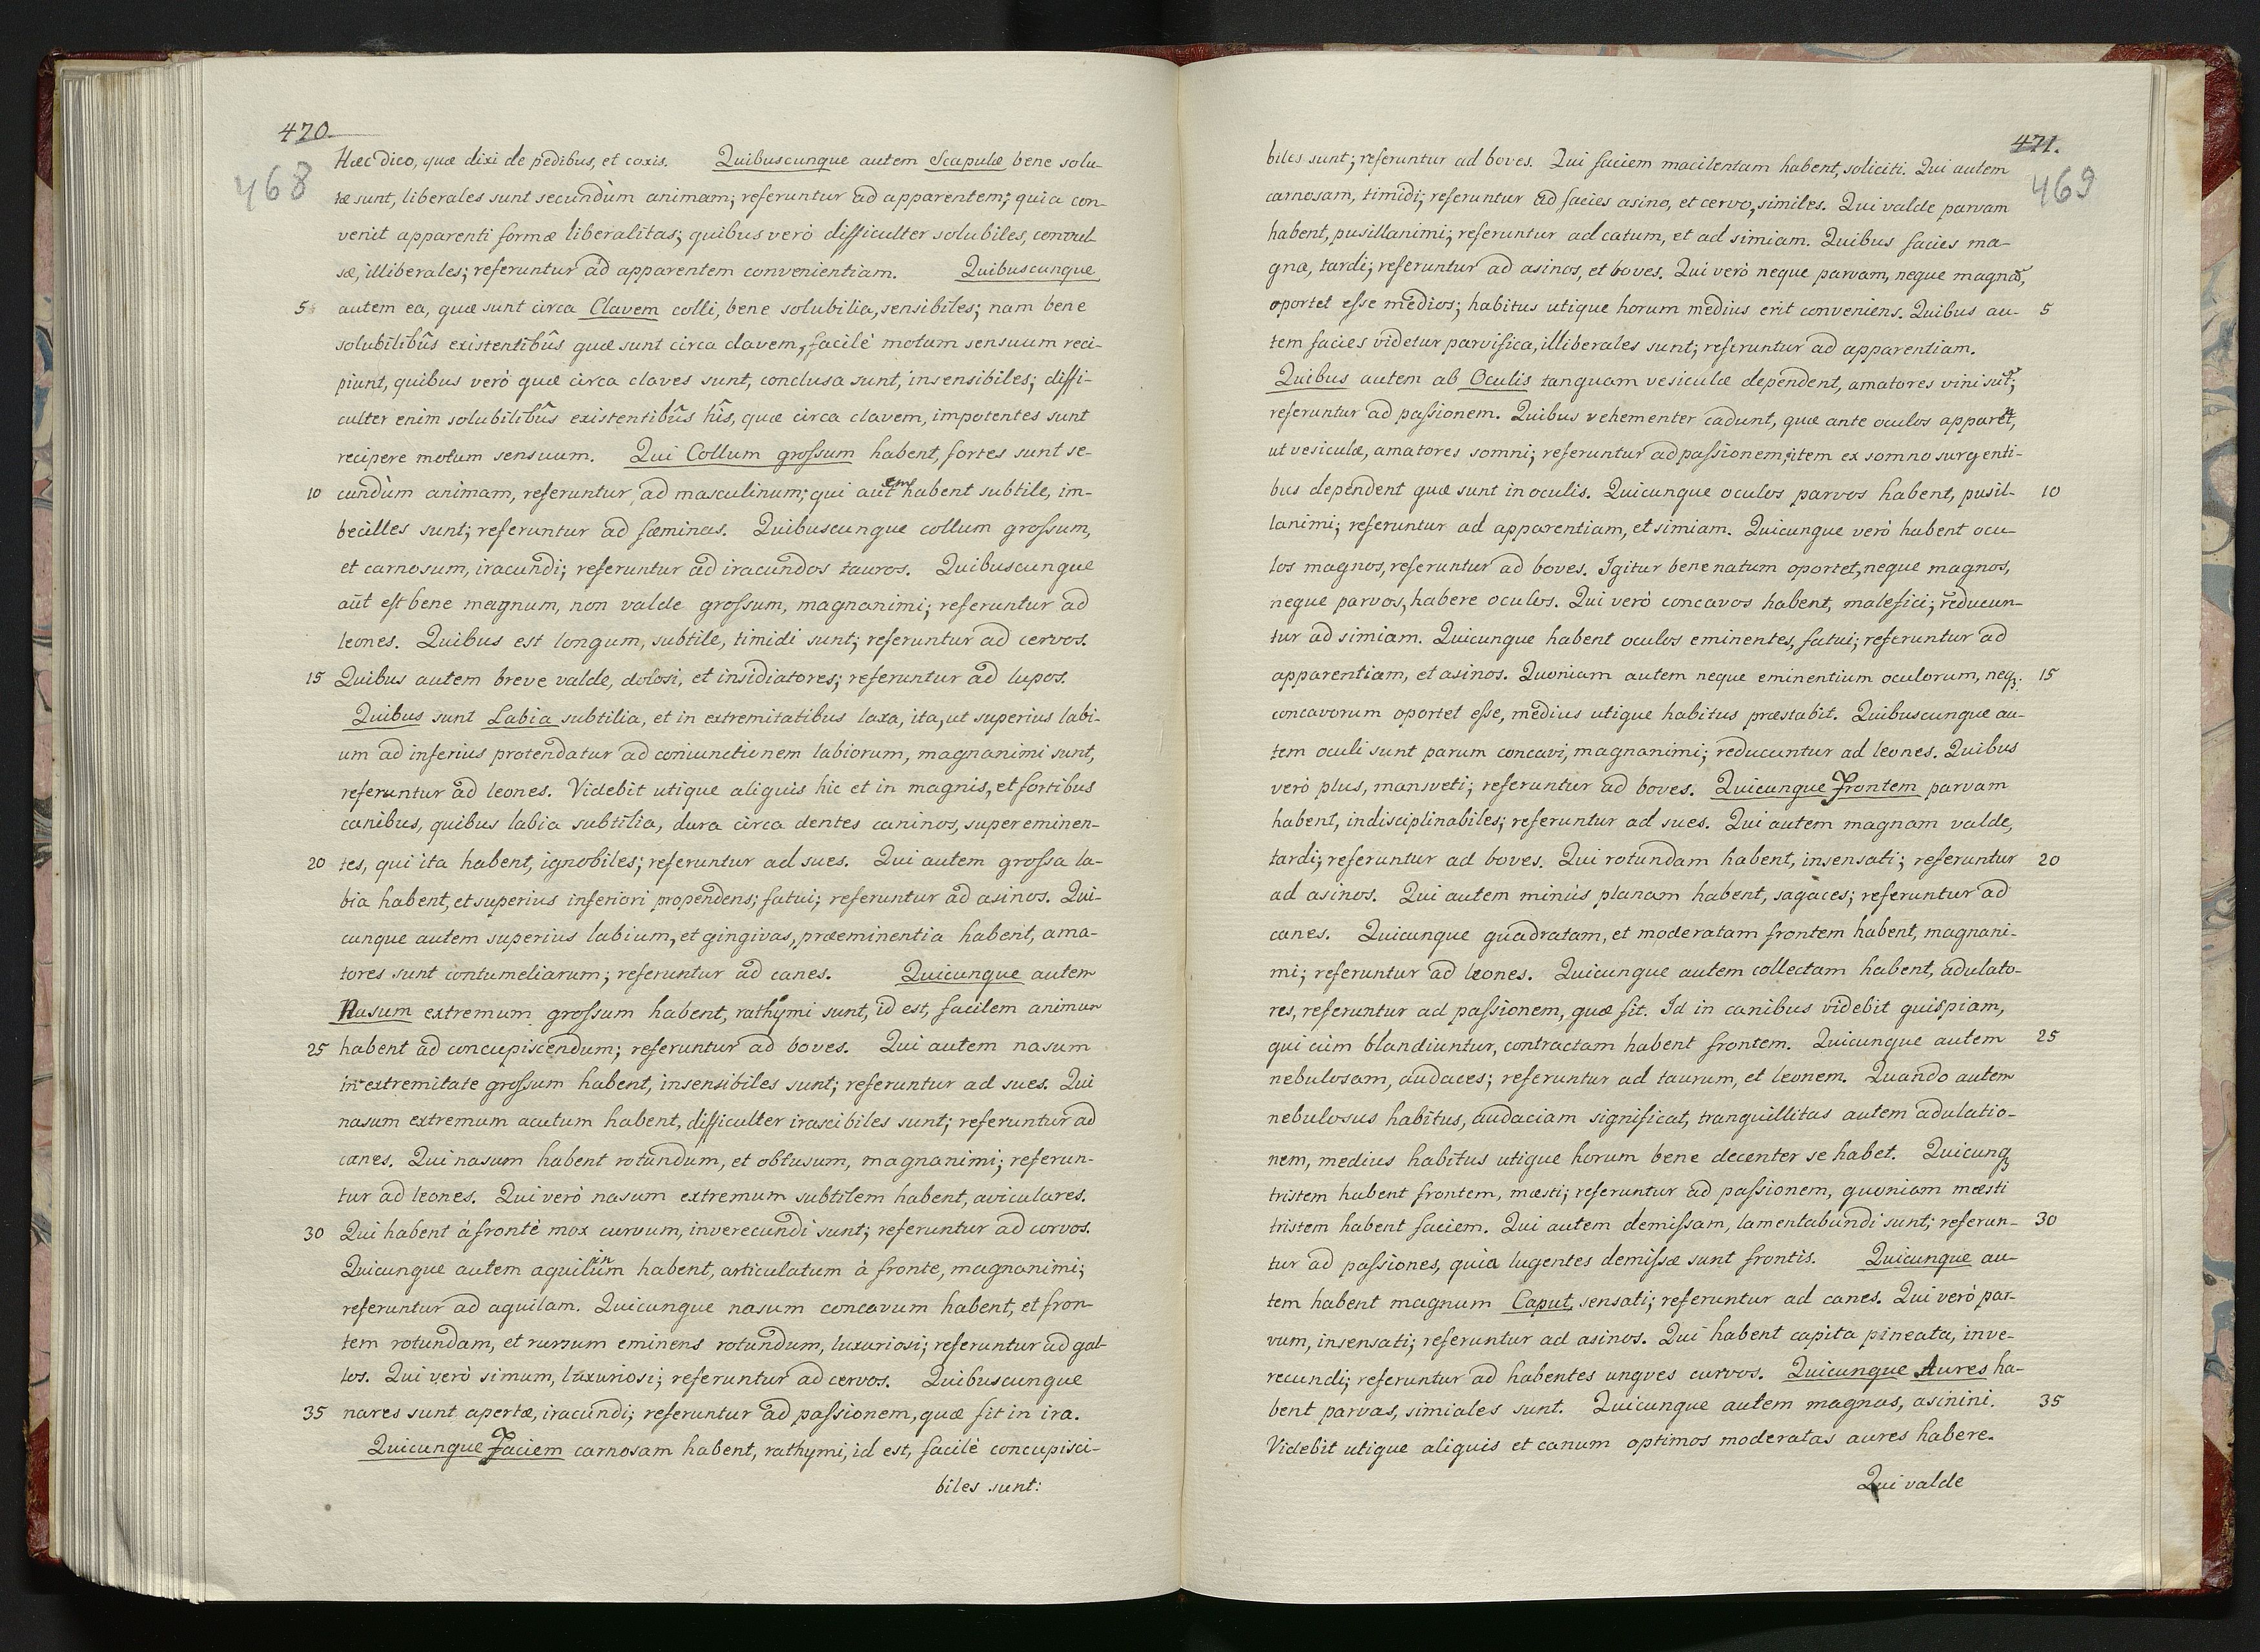 470.
468
Hæc dico, quæ dixi de pedibus, et coxis. Quibuscunque autem Scapulæ bene solu-
tæ sunt, liberales sunt secundùm animam; referuntur ad apparentem; quia con-
venit apparenti formæ liberalitas; quibus verò difficulter solubiles, convul-
sæ, illiberales; referuntur ad apparentem convenientiam. Quibuscunque
5 autem ea, quæ sunt circa Clavem colli, bene solubilia, sensibiles; nam bene
solubilibûs existentibûs quæ sunt circa clavem, facilè motum sensuum reci-
piunt, quibus verò quæ circa claves sunt, conclusa sunt, insensibiles; diffi-
culter enim solubilibûs existentibûs hîs, quæ circa clavem, impotentes sunt
recipere motum sensuum. Qui Collum grossum habent, fortes sunt se-
10 cundùm animam, referuntur ad masculinum; qui autem habent subtile, im-
becilles sunt; referuntur ad fœminas. Quibuscunque collum grossum,
et carnosum, iracundi; referuntur ad iracundos tauros. Quibuscunque
aūt est bene magnum, non valde grossum, magnanimi; referuntur ad
leones. Quibus est longum, subtile, timidi sunt; referuntur ad cervos.
15 Quibus autem breve valde, dolosi, et insidiatores; referuntur ad lupos.
Quibus sunt Labia subtilia, et in extremitatibus laxa, ita, ut superius labi-
um ad inferius protendatur ad coniunctionem labiorum, magnanimi sunt,
referuntur ad leones. Videbit utique aliquis hic et in magnis, et fortibus
canibus, quibus labia subtilia, dura circa dentes caninos, supereminen-
20 tes, qui ita habent, ignobiles; referuntur ad sues. Qui autem grossa la-
bia habent, et superius inferiori propendens; fatui; referuntur ad asinos. Qui-
cunque autem superius labium, et gingivas, præeminentia habent, ama-
tores sunt contumeliarum; referuntur ad canes. Quicunque autem
Nasum extremum grossum habent, rathymi sunt, id est, facilem animum
25 habent ad concupiscendum; referuntur ad boves. Qui autem nasum
in extremitate grossum habent, insensibiles sunt; referuntur ad sues. Qui
nasum extremum acutum habent, difficulter irascibiles sunt; referuntur ad
canes. Qui nasum habent rotundum, et obtusum, magnanimi; referun-
tur ad leones. Qui verò nasum extremum subtilem habent, aviculares.
30 Qui habent à frontè mox curvum, inverecundi sunt; referuntur ad corvos.
Quicunque autem aquilinum habent, articulatum à fronte, magnanimi;
referuntur ad aquilam. Quicunque nasum concavum habent, et fron-
tem rotundam, et rursum eminens rotundum, luxuriosi; referuntur ad gal-
los. Qui verò simum, luxuriosi; referuntur ad cervos. Quibuscunque
35 nares sunt apertæ, iracundi; referuntur ad passionem, quæ fit in ira.
Quicunque Faciem carnosam habent, rathymi, id est, facilè concupisci-
biles sunt:
471.
469
biles sunt; referuntur ad boves. Qui faciem macilentam habent, soliciti. Qui autem
carnosam, timidi; referuntur ad facies asino, et cervo, similes. Qui valde parvam
habent, pusillanimi; referuntur ad catum, et ad simiam. Quibus facies ma-
gna, tardi; referuntur ad asinos, et boves. Qui verò neque parvam, neque magnā,
oportet esse medios; habitus utique horum medius erit conveniens. Quibus au- 5
tem facies videtur parvifica, illiberales sunt; referuntur ad apparentiam.
Quibus autem ab Oculis tanquam vesiculæ dependent, amatores vini sūt;
referuntur ad passionem. Quibus vehementer cadunt, quæ ante oculos apparent,
ut vesiculæ, amatores somni; referuntur ad passionem; item ex somno surgenti-
bus dependent quæ sunt in oculis. Quicunque oculos parvos habent, pusil- 10
lanimi; referuntur ad apparentiam, et simiam. Quicunque verò habent ocu-
los magnos, referuntur ad boves. Igitur bene natum oportet, neque magnos,
neque parvos, habere oculos. Qui verò concavos habent, malefici; reducun-
tur ad simiam. Quicunque habent oculos eminentes, fatui; referuntur ad
apparentiam, et asinos. Quoniam autem neque eminentium oculorum, neqȝ 15
concavorum oportet esse, medius utique habitus præstabit. Quibuscunque au-
tem oculi sunt parum concavi, magnanimi; reducuntur ad leones. Quibus
verò plus, mansveti; referuntur ad boves. Quicunque Frontem parvam
habent, indisciplinabiles; referuntur ad sues. Qui autem magnam valde,
tardi; referuntur ad boves. Qui rotundam habent, insensati; referuntur 20
ad asinos. Qui autem minùs planam habent, sagaces; referuntur ad
canes. Quicunque quadratam, et moderatam frontem habent, magnani-
mi; referuntur ad leones. Quicunque autem collectam habent, adulato-
res, referuntur ad passionem, quæ fit. Id in canibus videbit quispiam,
qui cùm blandiuntur, contractam habent frontem. Quicunque autem 25
nebulosam, audaces; referuntur ad taurum, et leonem. Quando autem
nebulosus habitus, audaciam significat, tranquillitas autem adulatio-
nem, medius habitus utique horum bene decenter se habet. Quicunqȝ
tristem habent frontem, mæsti; referuntur ad passionem, quoniam mæsti
tristem habent faciem. Qui autem demissam, lamentabundi sunt; referun- 30
tur ad passiones, quia lugentes demissæ sunt frontis. Quicunque au-
tem habent magnum Caput, sensati; referuntur ad canes. Qui verò par-
vum, insensati; referuntur ad asinos. Qui habent capita pineata, inve-
recundi; referuntur ad habentes ungves curvos. Quicunque Aures ha-
bent parvas, simiales sunt. Quicunque autem magnas, asinini. 35
Videbit utique aliquis et canum optimos moderatas aures habere.
Qui valde